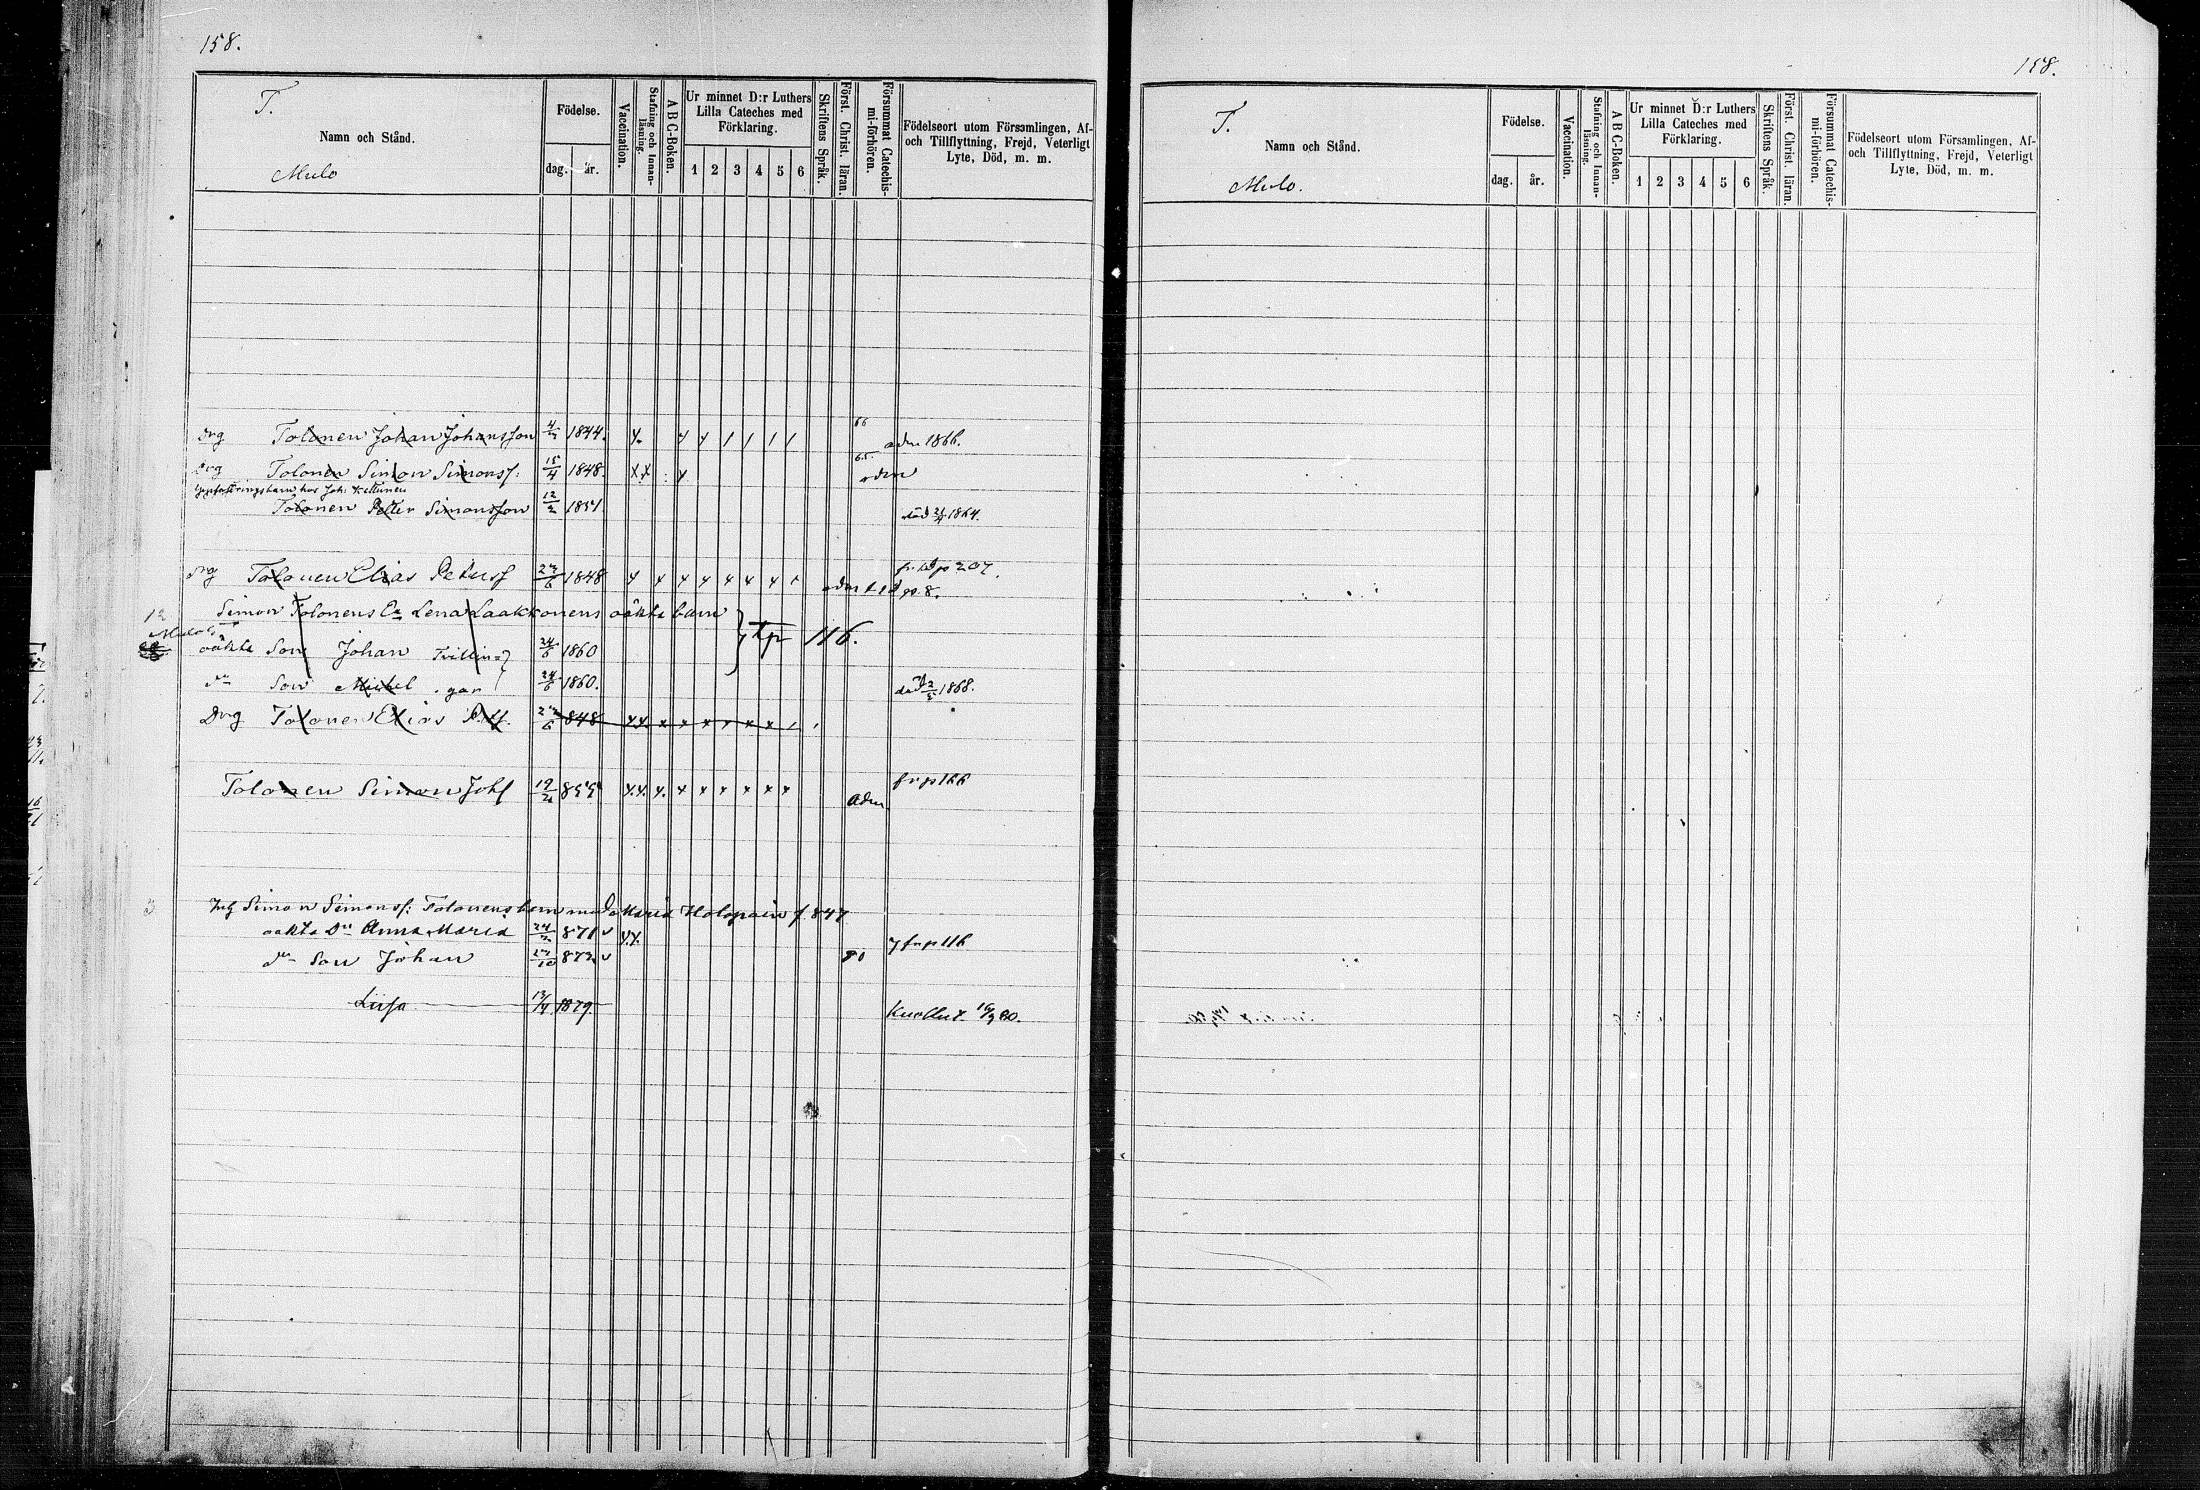 158.
T.
Namn och Stånd.
Mulo
Födelse.
dag. år.
Vaccination.
Stafning och Innan-läsning.
A B C-Boken.
Ur minnet D:r Luthers Lilla Cateches med Förklaring.
1 2 3 4 5 6
Skriftens Språk.
Först. Christ. läran.
Försummat Catechis-mi-förhören.
Födelseort utom Församlingen, Af- och Tillflyttning, Frejd, Veterligt Lyte, Död, m. m.
66
Drg Tolonen Johan Johansson 1844. adm 1866.
65.
Drg Tolonen Simon Simonss: 15/4 1848. x x adm
hos Joh: Kettunen
Tolonen Petter Simonsson 12/2 1851. död 1864.
Drg Tolonen Elias Peterss 27/6 1848 fr. p 207.
adm p. 8.
Simon Tolonens Lena Laakkonens oäkta barn
12
oäkta Son Johan Tvillin= 24/6 1860 Tp 116.
Son Michel gar 24/6 1860. död 1868.
Drg Tolonen Elias 27/6 848
Tolonen Simon Johs 19/ 855 x x x x x x x x fr p 166
adm
3
Simon Simonss: Tolonens barn med Maria Holopain f. 847
oäkta Dr Anna Maria 24/ 871 x x fr p 116
Son Johan 27/10 872 80
Liisa 13/4 1879. Kuollut 16/9 80.
158.
T.
Namn och Stånd.
Mulo.
Födelse.
dag. år.
Vaccination.
Stafning och Innan-läsning.
A B C-Boken.
Ur minnet D:r Luthers Lilla Cateches med Förklaring.
1 2 3 4 5 6
Skriftens Språk.
Först. Christ. läran.
Försummat Catechis-mi-förhören.
Födelseort utom Församlingen, Af- och Tillflyttning, Frejd, Veterligt Lyte, Död, m. m.